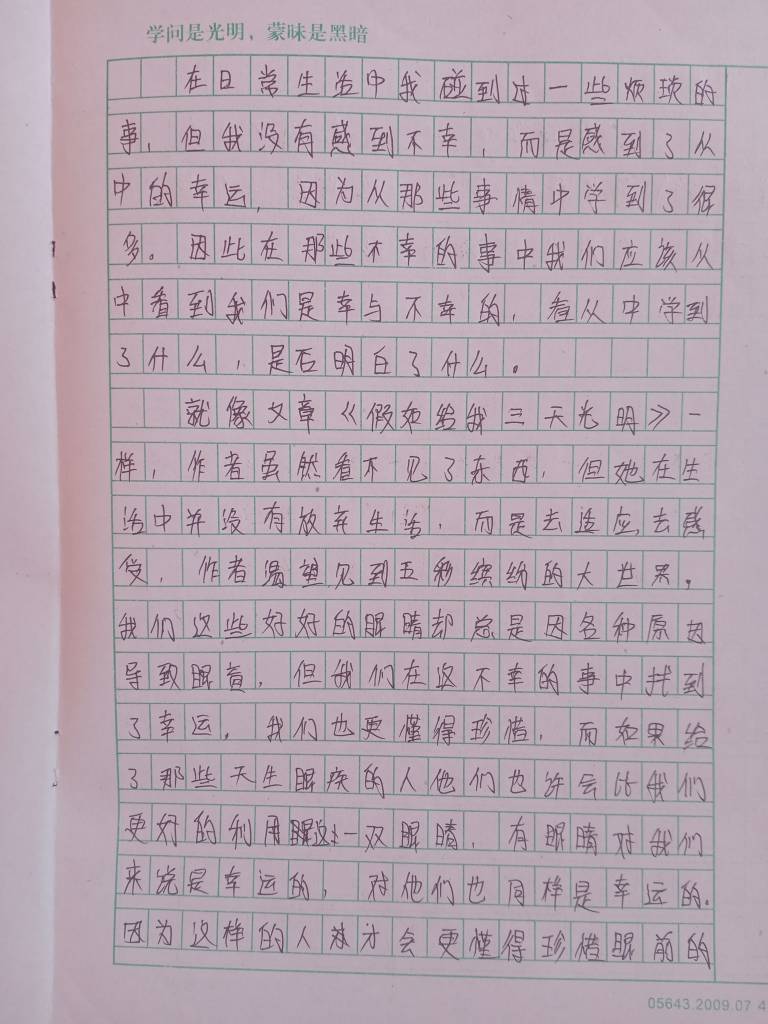 学问是光明，蒙昧是黑暗
在日常生活中我碰到过一些烦琐的
事，但我没有感到不幸，而是感到了从
中的幸运，因为从那些事情中学到了很
多。因此在那些不幸的事中我们应该从
中看到我们是幸与不幸的，看从中学到
了什么，是否明白了什么。
就像文章《假如给我三天光明》一
样，作者虽然看不见了东西，但她在生
活中并没有放弃生活，而是去适应，去感
受，作者渴望见到五彩缤纷的大世界。
我们这些好好的眼睛却总是因各种原因
导致眼盲，但我们在这不幸的事中找到
了幸运。我们也更懂得珍惜，而如果给
了那些天生眼疾的人他们也许会比我们
更好的利用这一双眼睛，有眼睛对我们
来说是幸运的，对他们也同样是幸运的。
因为这样的人才会更懂得珍惜眼前的
05643.2009.07 4